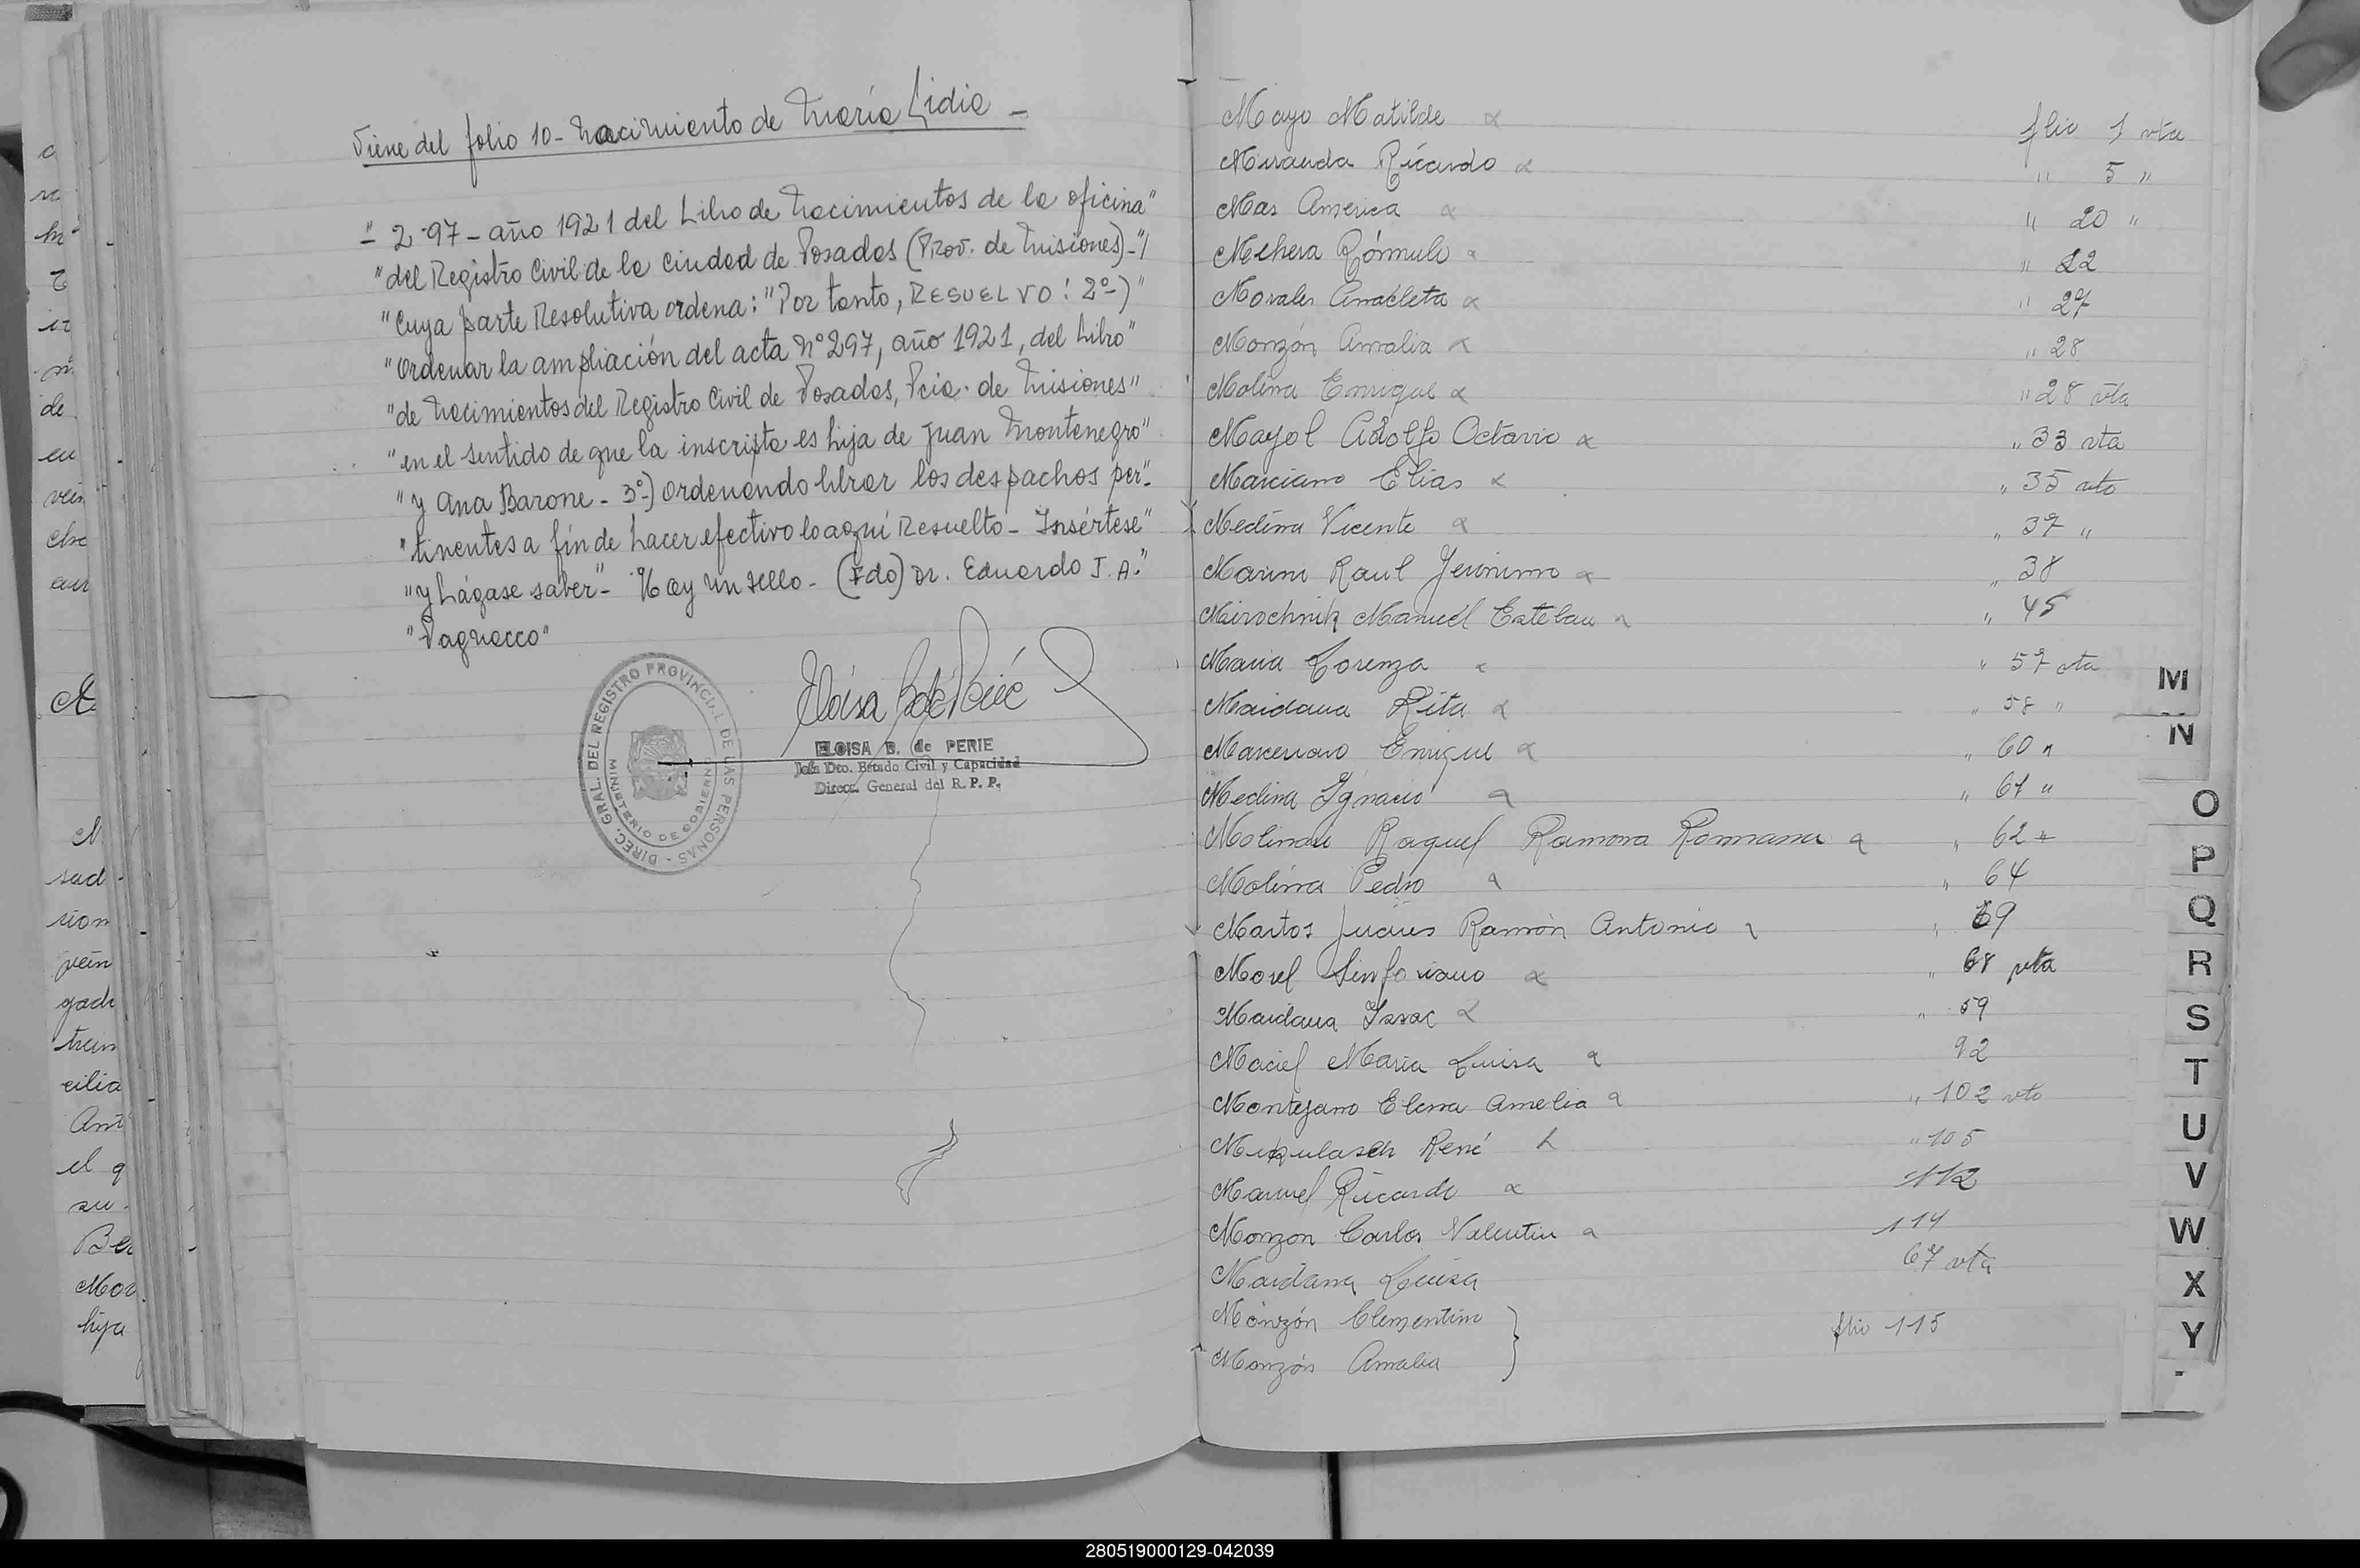 Viene del folio 10 - Nacimiento de María Lidia -
"- 297 - año 1921 del Libro de Nacimientos de la oficina"
"del Registro Civil de la Ciudad de Posadas (Prov. de Misiones)-"/
"Cuya parte Resolutiva ordena: "Por tanto, RESUELVO: 2º-)"
"Ordenar la ampliación del acta Nº 297, año 1921, del Libro"
"de Nacimientos del Registro Civil de Posadas, Pcia. de Misiones"
"en el sentido de que la inscripta es hija de Juan Montenegro"
"y Ana Barone - 3º-) Ordenando librar los despachos per-"
"tinentes a fín de hacer efectivo lo aquí Resuelto - Insértese"
"y hágase saber"- Hay un sello - (Fdo) Dr. Eduardo J. A."
"Pagnocco"
DIREC. GRAL. DEL REGISTRO PROVINCIAL DE LAS PERSONAS -
MINISTERIO DE GOBIERNO
ELOISA B. de PERIE
Jefe Dto. Estado Civil y Capacidad
Direcc. General del R. P. P.
Mayo Matilde folio 1 vta
Miranda Ricardo " 5 "
Mas America " 20 "
Rómulo " 22
Morales Anacleta " 27
Monzón Amalia " 28
Molina Enrique " 28 vta
Mayol Adolfo Octavio " 33 vta
Marciano Elias " 35 vto
Medina Vicente " 37 "
Marini Raul Jeronimo " 38
Mirochnik Manuel Esteban " 45
Maria Lorenza " 57 vta
Maidana Rita " 58 "
Enrique " 60 "
Medina Ignacio " 61 "
Raquel Ramona Romana " 62 "
Molina Pedro " 64
Martos Ramón Antonio " 69
Morel Sinforiano " 68 vta
Maidana Isaac " 59
Maciel Maria Luisa 92
Montejano Elena Amelia " 102 vto
René " 105
Manuel Ricardo 112
Monzon Carlos Valentin 114
Maidana Luisa 67 vta
Monzón Clementina
Monzón Amalia } folio 115
M
N
O
P
Q
R
S
T
U
V
W
X
Y
280519000129-042039